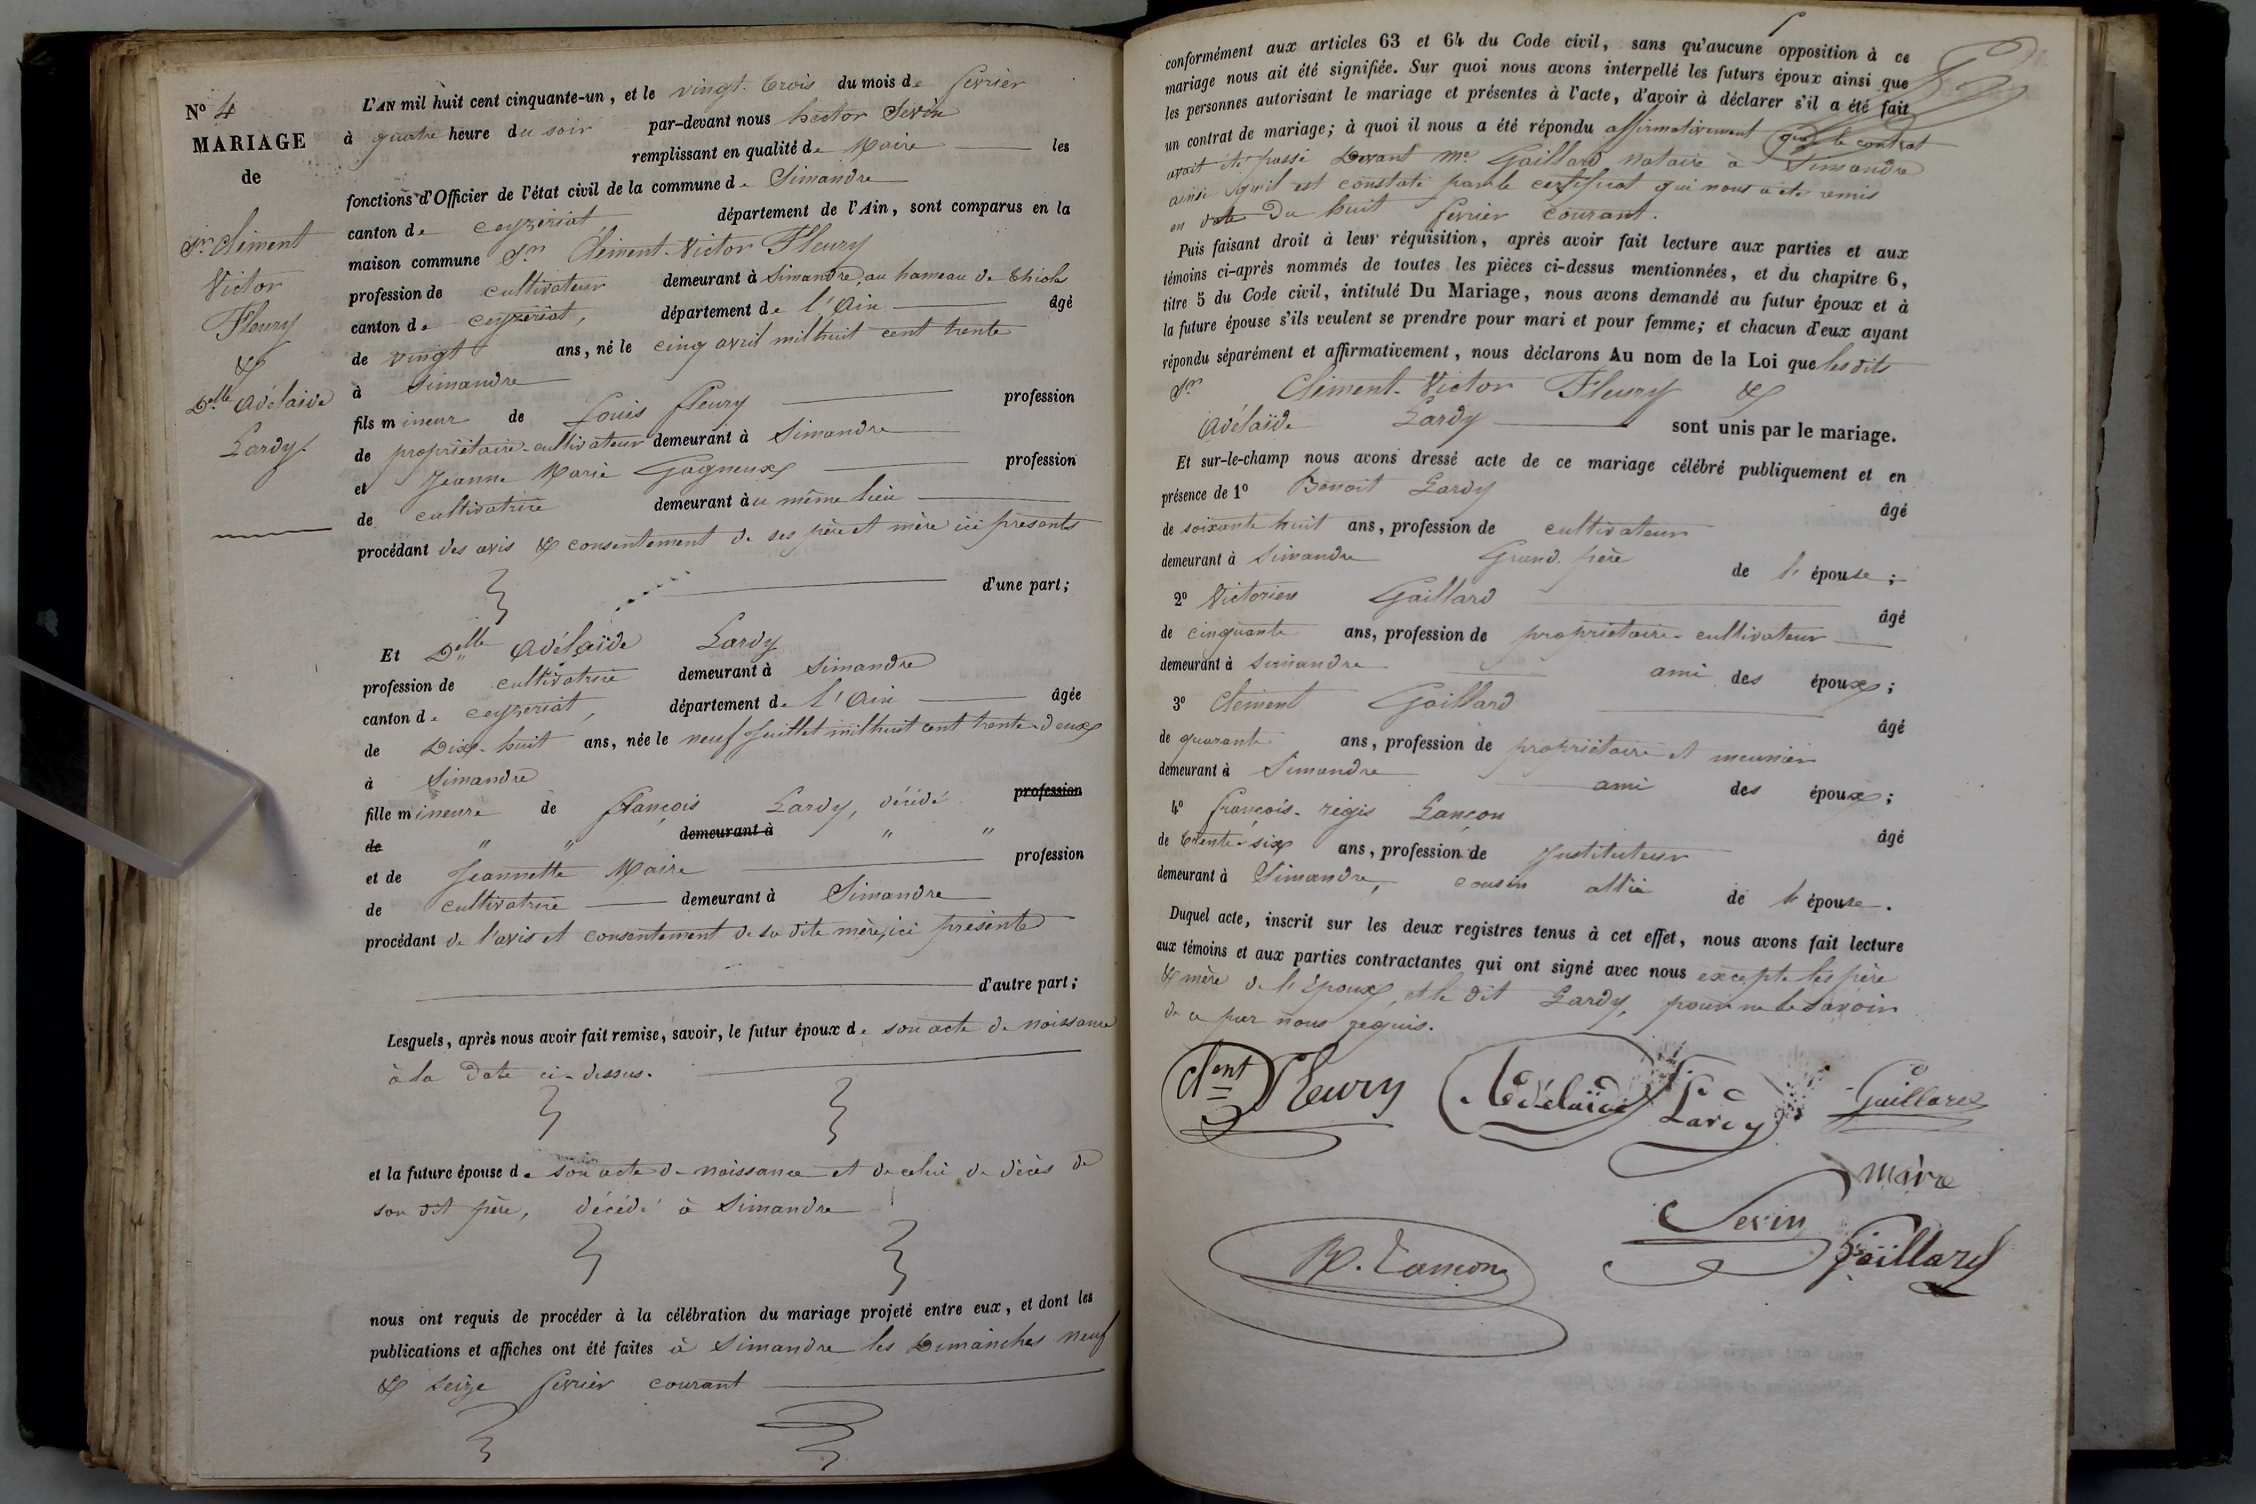 N° 4
MARIAGE
de
Sr Clément
Victor
Fleury
&
Delle Adélaïde
Lardy.
L'AN mil huit cent cinquante-un, et le vingt-trois du mois de février
à quatre heure du soir par-devant nous hector Sevin
remplissant en qualité de Maire les
fonctions d'Officier de l'état civil de la commune de Simandre
canton de ceyzeriat département de l'Ain, sont comparus en la
maison commune Sr Clément-Victor Fleury
profession de cultivateur demeurant à Simandre, au hameau de Thiole
canton de ceyzeriat, département de l'Ain âgé
de vingt ans, né le cinq avril mil huit cent trente
à Simandre
fils mineur de Louis fleury profession
de propriétaire-cultivateur demeurant à Simandre
et Jeanne Marie Gagneux profession
de cultivatrice demeurant au même lieu
procédant des avis & consentement de ses père et mère ici présents
d'une part;
Et Delle Adélaïde Lardy
profession de cultivatrice demeurant à Simandre
canton de ceyzeriat, département de l'Ain âgée
de Dix-huit ans, née le neuf Juillet mil huit cent trente-deux
à Simandre
fille mineure de françois Lardy, décédé profession
de " " demeurant à " "
et de Jeannette Maire profession
de cultivatrice demeurant à Simandre
procédant de l'avis et consentement de sa dite mère, ici présente
d'autre part;
Lesquels, après nous avoir fait remise, savoir, le futur époux de son acte de naissance
à la date ci-dessus.
et la future épouse de son acte de naissance et de celui de décès de
son dit père, décédé à Simandre
nous ont requis de procéder à la célébration du mariage projeté entre eux, et dont les
publications et affiches ont été faites à Simandre les Dimanches neuf
& seize février courant
conformément aux articles 63 et 64 du Code civil, sans qu'aucune opposition à ce
mariage nous ait été signifiée. Sur quoi nous avons interpellé les futurs époux ainsi que
les personnes autorisant le mariage et présentes à l'acte, d'avoir à déclarer s'il a été fait
un contrat de mariage; à quoi il nous a été répondu affirmativement que le contrat
avait été passé Devant Me Gaillard Notaire à Simandre
ainsi qu'il est constaté par le certificat qui nous a été remis
en date Du huit février courant.
Puis faisant droit à leur réquisition, après avoir fait lecture aux parties et aux
témoins ci-après nommés de toutes les pièces ci-dessus mentionnées, et du chapitre 6,
titre 5 du Code civil, intitulé Du Mariage, nous avons demandé au futur époux et à
la future épouse s'ils veulent se prendre pour mari et pour femme; et chacun d'eux ayant
répondu séparément et affirmativement, nous déclarons Au nom de la Loi que les dits
Sr Clément-Victor Fleury &
Adélaïde Lardy sont unis par le mariage.
Et sur-le-champ nous avons dressé acte de ce mariage célébré publiquement et en
présence de 1° Benoit Lardy âgé
de soixante huit ans, profession de cultivateur
demeurant à Simandre Grand-père de l'épouse;
2° Victorien Gaillard âgé
de cinquante ans, profession de propriétaire-cultivateur
demeurant à Simandre ami des époux;
3° Clément Gaillard âgé
de quarante ans, profession de propriétaire et meunier
demeurant à Simandre ami des époux;
4° françois-régis Lançon âgé
de trente-six ans, profession de Instituteur
demeurant à Simandre, cousin allié de l'épouse.
Duquel acte, inscrit sur les deux registres tenus à cet effet, nous avons fait lecture
aux témoins et aux parties contractantes qui ont signé avec nous excepté les père
& mère de l'époux, et le dit Lardy, pour ne le savoir
de ce par nous requis.
Clent Fleury Adélaïde Lardy Gaillard
maire
Sevin
R. Lançon Gaillard